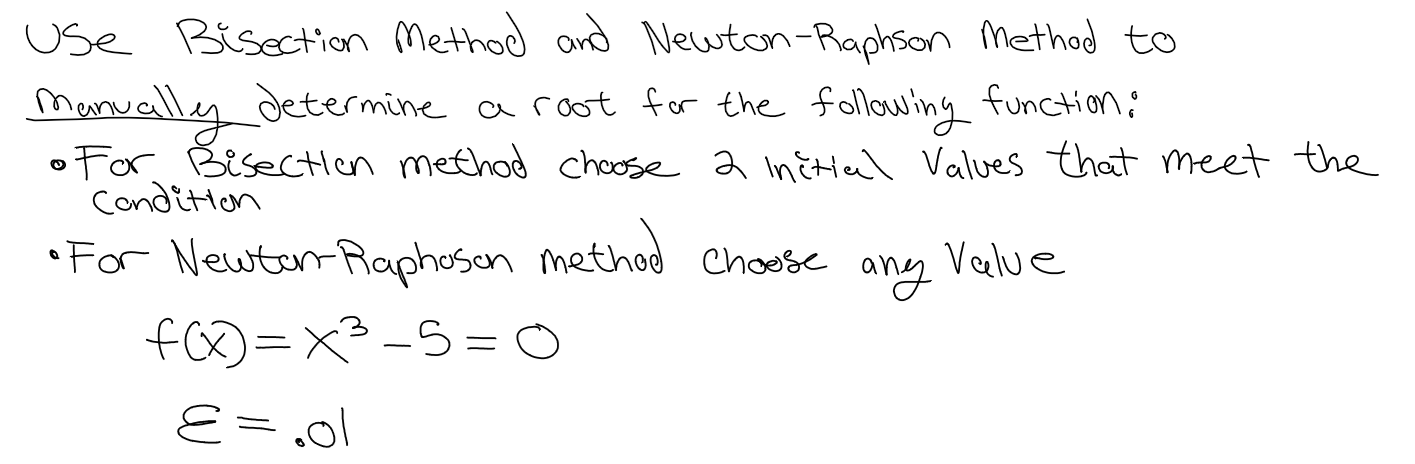 Use Bisection Method and Newton-Raphson Method to
manually determine a root for the following function:
• For Bisection method choose 2 initial values that meet the
condition
• For Newton-Raphoson method choose any value
f(x) = x³ - 5 = 0
ε = .01